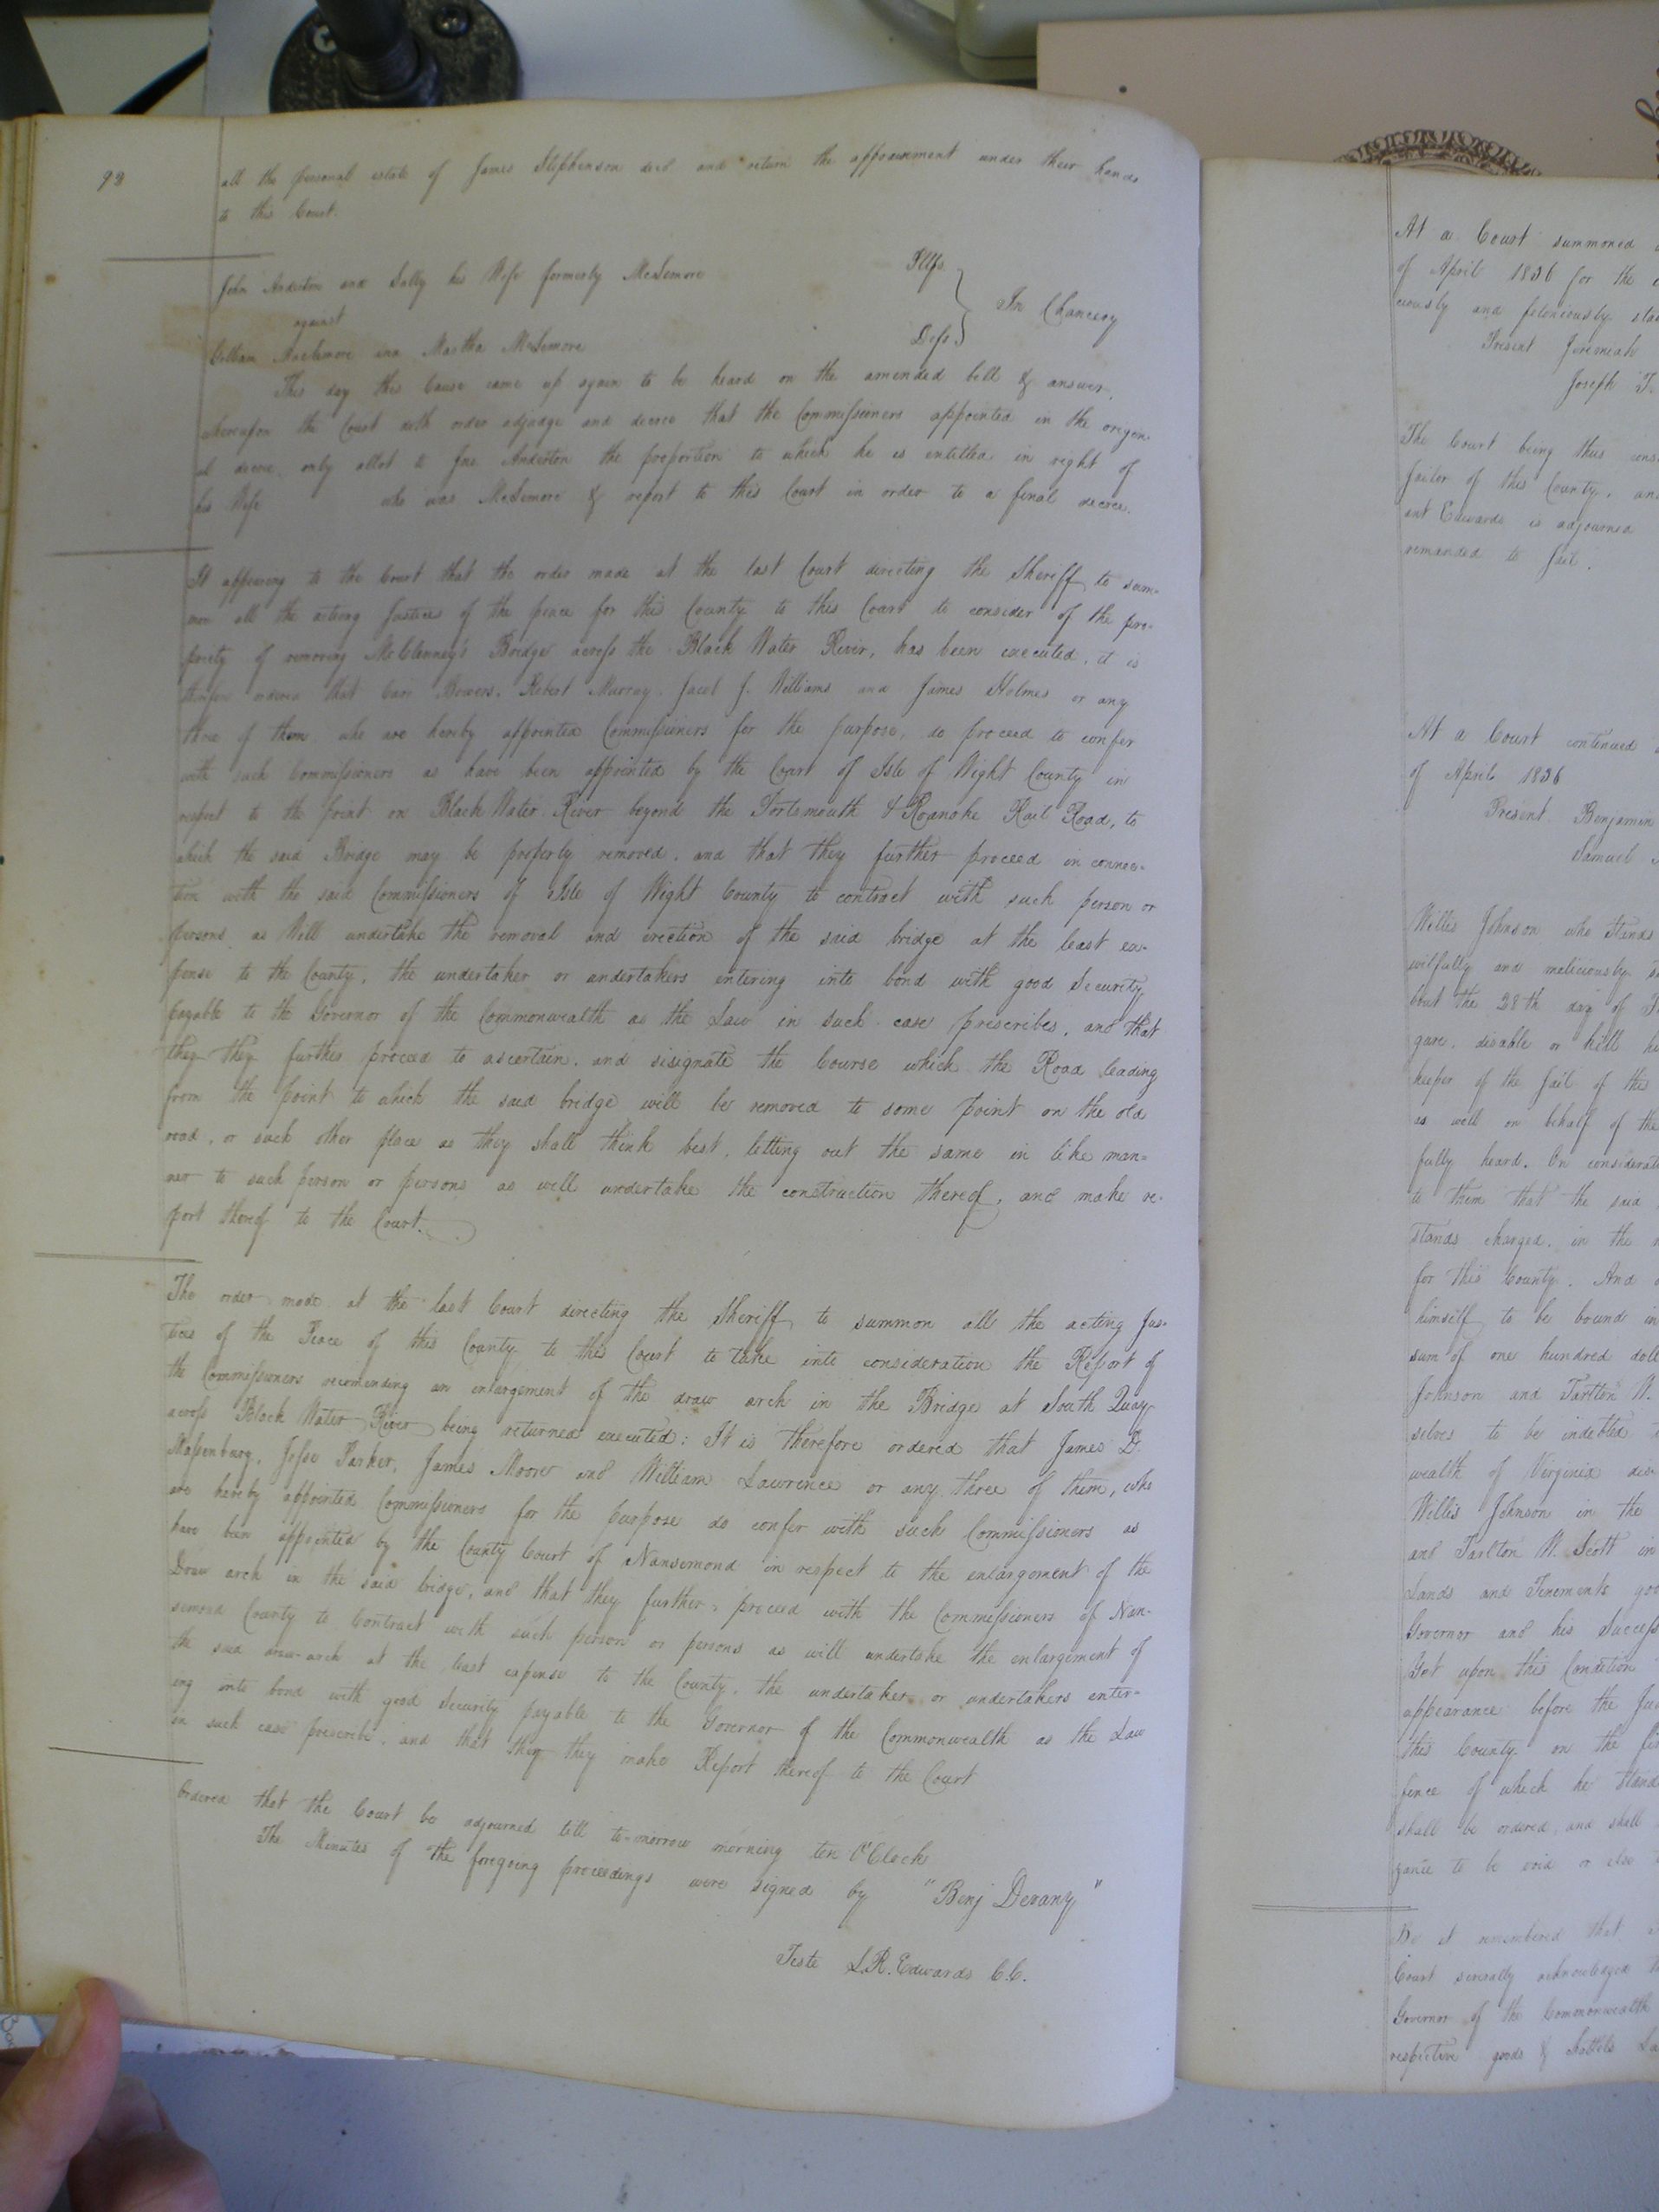 98
all the personal estate of James Stephenson decd and return the appraisment under their hands
to this Court.
John Anderton and Sally his Wife formerly McLemore Pltfs.
against
In Chancery
and Martha McLemore Defts.
This day this Cause came up again to be heard on the amended bill & answer,
whereupon the Court doth order adjudge and decree that the Commissioners appointed in the origin-
al decree, only allot to Jno Anderton the proportion to which he is entitled in right of
his Wife who was McLemore & report to this Court in order to a final decree.
It appearing to the Court that the order made at the last Court directing the Sheriff to sum-
mon all the acting Justices of the peace for this County to this Court to consider of the pro-
priety of removing McClenney's Bridge across the Black Water River, has been executed, it is
therefore ordered that Carr Bowers, Robert Murray, Jacob J. Williams and James Holmes or any
three of them who are hereby appointed Commissioners for the purpose, do proceed to confer
with such Commissioners as have been appointed by the Court of Isle of Wight County in
respect to the point on Black Water River beyond the Portsmouth & Roanoke Rail Road, to
which the said Bridge may be properly removed, and that they further proceed in connec-
tion with the said Commissioners of Isle of Wight County to contract with such person or
persons as Will undertake the removal and erection of the said bridge at the least ex-
pense to the County, the undertaker or undertakers entering into bond with good Security,
payable to the Governor of the Commonwealth as the Law in such case prescribes, and that
they they further proceed to ascertain, and disignate the Course which the Road leading
from the point to which the said bridge will be removed to some point on the old
road, or such other place as they shall think best, letting out the same in like man=
ner to such person or persons as will undertake the construction thereof, and make re-
port thereof to the Court.
The order made at the last Court directing the Sheriff to summon all the acting Jus-
tices of the Peace of this County to this Court to take into consideration the Report of
the Commissioners recomending an enlargement of the draw arch in the Bridge at South Quay
across Black Water River being returned executed; It is therefore ordered that James D.
Massenburg, Jesse Parker, James Moore and William Lawrence or any three of them, who
are hereby appointed Commissioners for the purpose do confer with such Commissioners as
have been appointed by the County Court of Nansemond in respect to the enlargement of the
Draw arch in the said bridge, and that they further proceed with the Commissioners of Nan-
semond County to Contract with such person or persons as will undertake the enlargement of
the said draw-arch at the least expense to the County, the undertaker or undertakers enter=
ing into bond with good Security payable to the Governor of the Commonwealth as the Law
in such case prescribe, and that they they make Report thereof to the Court
Ordered that the Court be adjourned till to-morrow morning ten O'Clock
The Minutes of the foregoing proceedings were signed by "Benj Devany"
Teste L.R. Edwards C.C.
At a Court summoned
of April 1836 for the
ciously and feloniously
Present Jeremiah
Joseph
The Court being thus
Jailor of this County, an
ant Edwards is adjourned
remanded to Jail.
At a Court continued
of April 1836
Present Benjamin
Samuel
Willis Johnson who Stands
wilfully and maliciously
bout the 28th day of
disable or kill
keeper of the Jail of the
as well on behalf of the
fully heard. On considerati
to them that the said
stands charged, in the
for this County. And
himself to be bound in
sum of one hundred doll
Johnson and Tarlton W.
selves to be indebted
wealth of Virginia
Willis Johnson in the
and Tarlton W. Scott in
Lands and Tenements
Governor and his Success
Yet upon this Condition
appearance before the
this County on the
fence of which he Stand
shall be ordered, and shall
zance to be void or else
Be it remembered that
Court severally acknowledged
Governor of the Commonwealth
respective goods & chattels